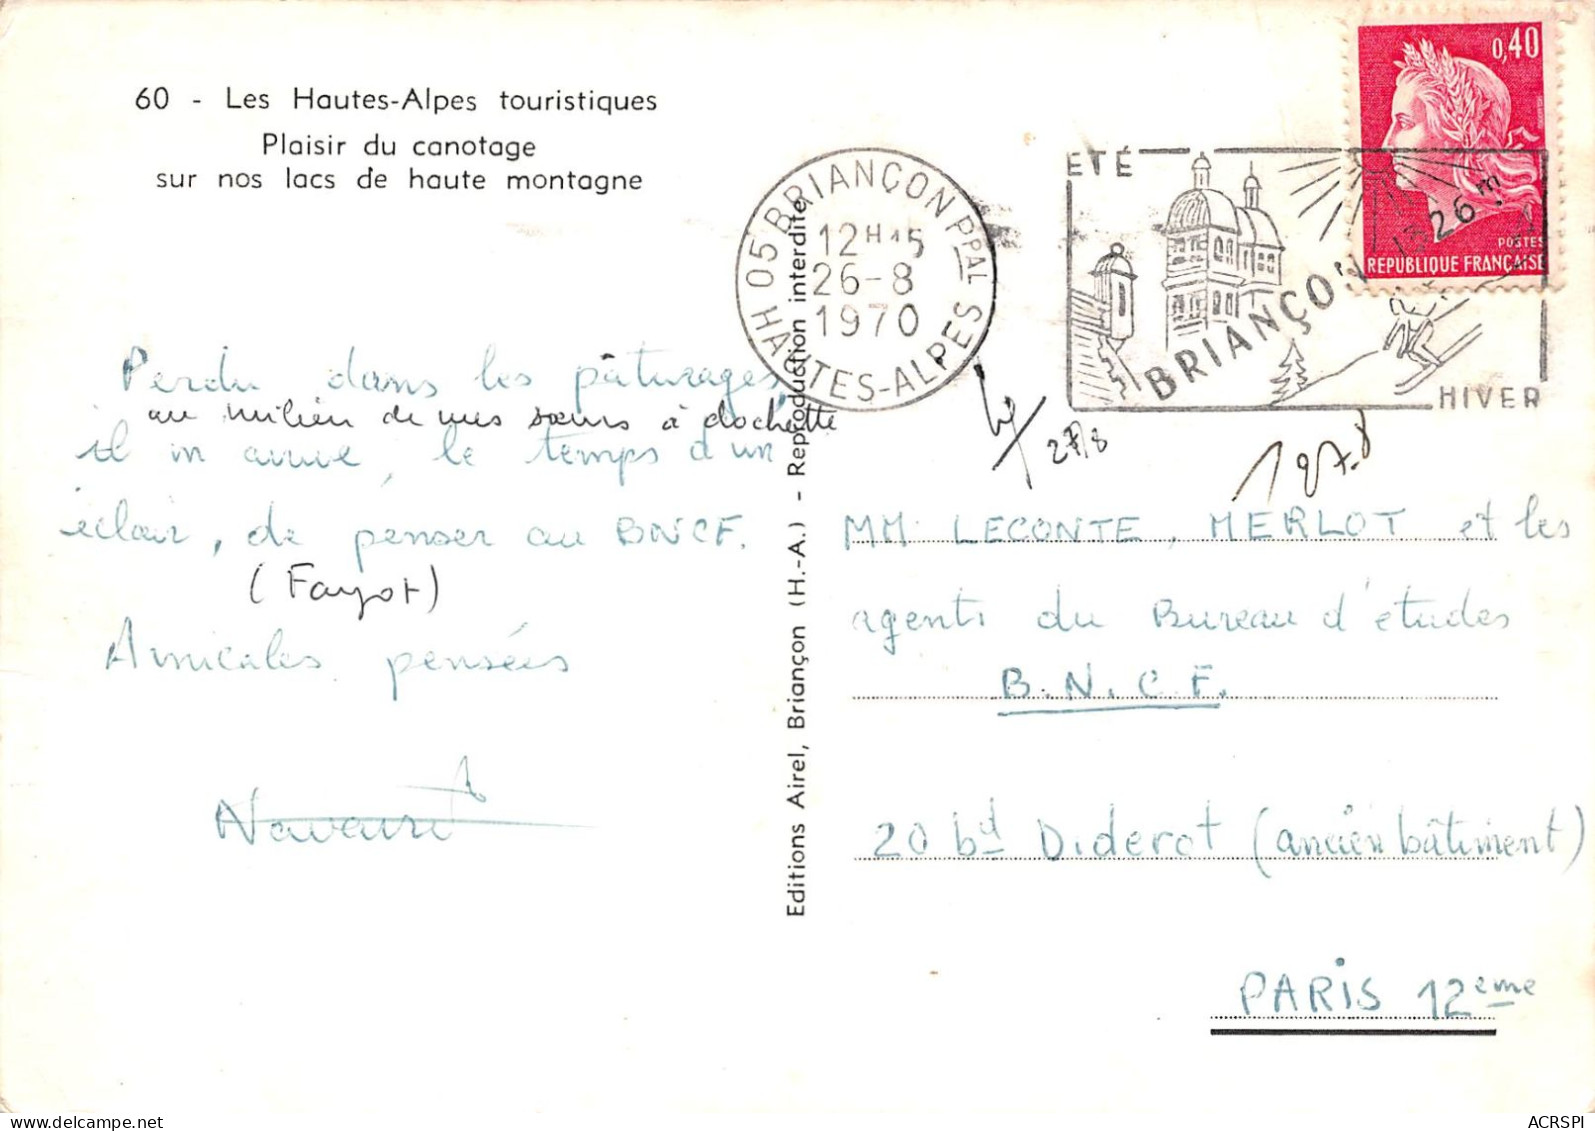 60 - Les Hautes-Alpes touristiques
Plaisir du canotage
sur nos lacs de haute montagne
Perdu dans les pâturages,
au milieu de mes sœurs à clochette
il m'arrive, le temps d'un
éclair, de penser au BNCF.
(Fayot)
Amicales pensées
05 BRIANÇON PPAL
12H15
26-8
1970
HAUTES-ALPES
ETÉ
BRIANÇON 1326 m.
HIVER
0,40
POSTES
REPUBLIQUE FRANÇAISE
27/8
27.8
Editions Airel, Briançon (H.-A.) - Reproduction interdite
MM. LECONTE, MERLOT et les
agents du Bureau d'études
B.N.C.F.
20 bd Diderot (ancien bâtiment)
PARIS 12eme
www.delcampe.net
ACRSPI